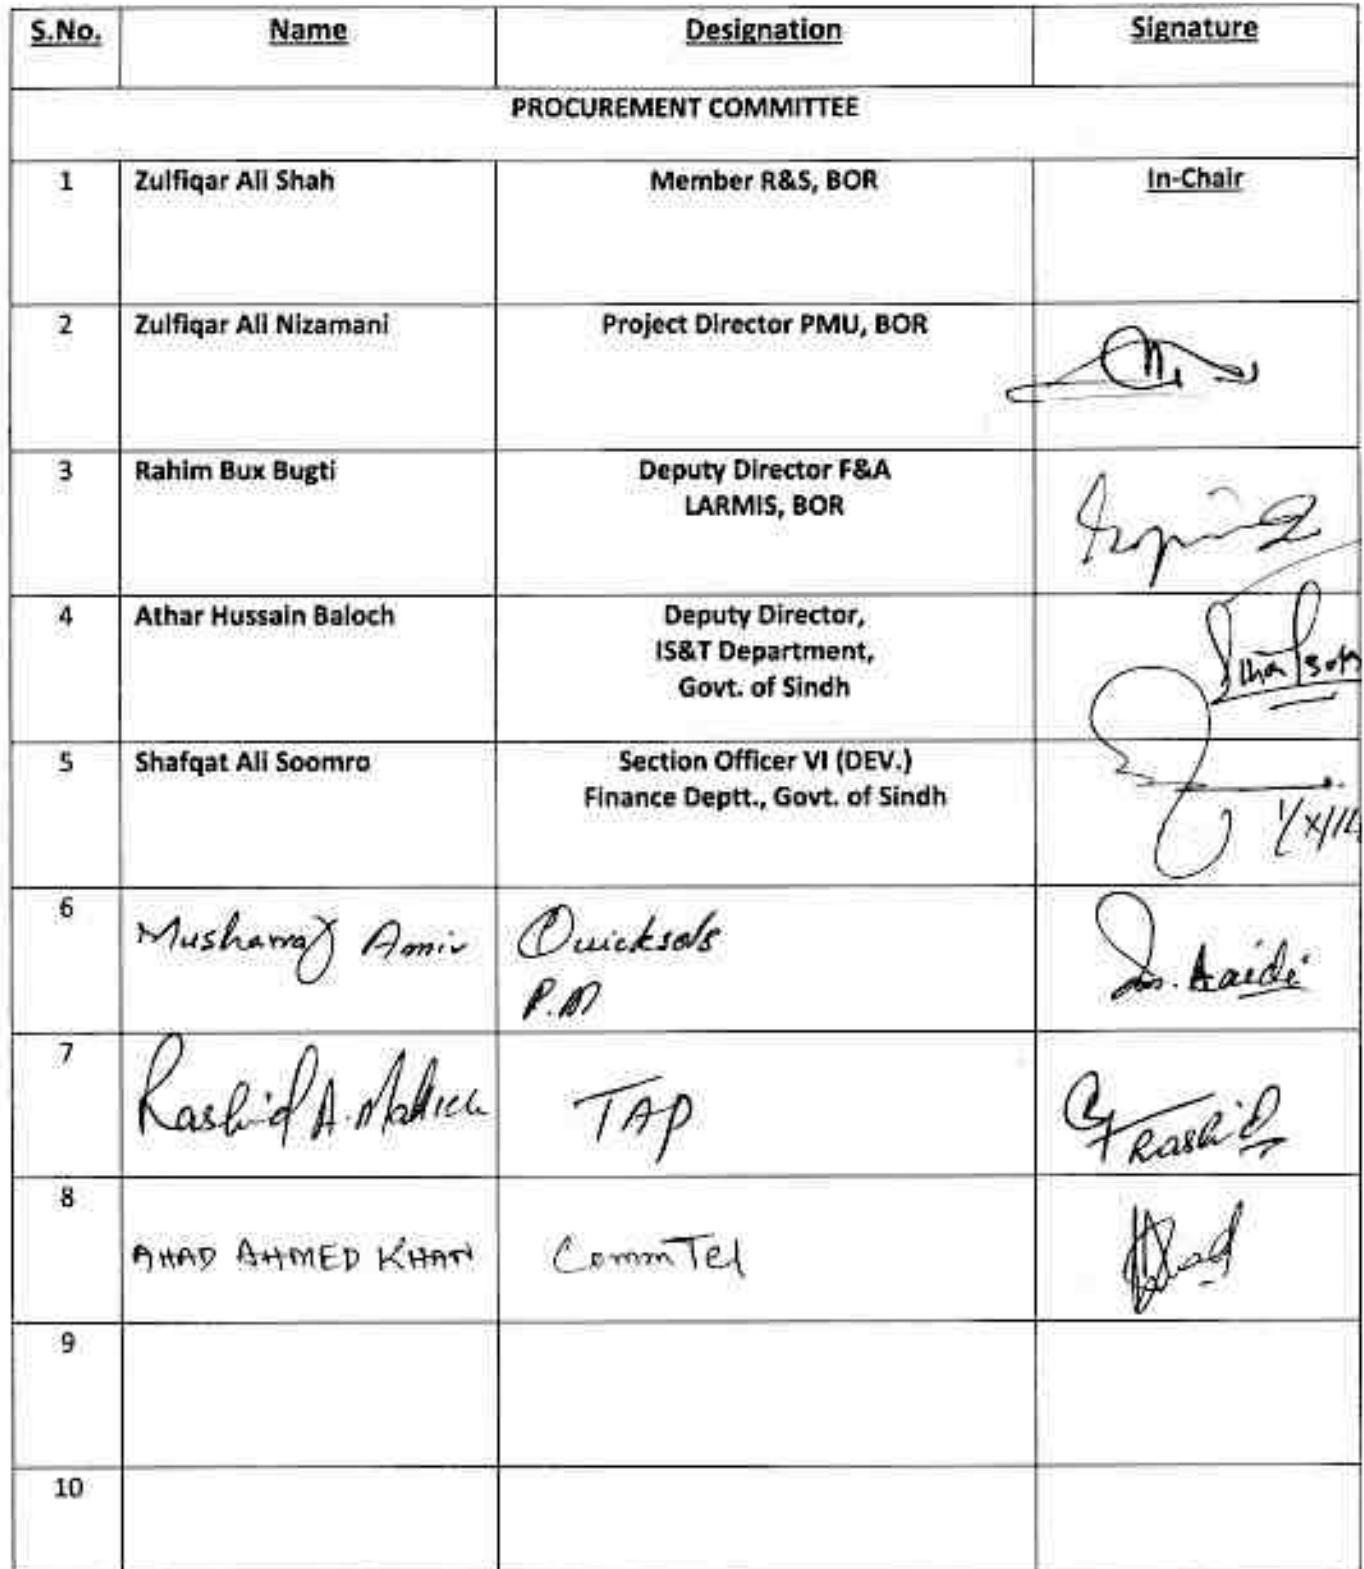 S.No. Name Designation Signature
PROCUREMENT COMMITTEE
1 Zulfiqar Ali Shah Member R&S, BOR In-Chair
2 Zulfiqar Ali Nizamani Project Director PMU, BOR
3 Rahim Bux Bugti Deputy Director F&A
LARMIS, BOR
4 Athar Hussain Baloch Deputy Director,
IS&T Department,
Govt. of Sindh
5 Shafqat Ali Soomro Section Officer VI (DEV.)
Finance Deptt., Govt. of Sindh
1/X/14
6 Musharraf Amir Quicksols
P.M
7 Rashid A. Mallick TAP Rashid
8 AHAD AHMED KHAN CommTel Ahad
9
10